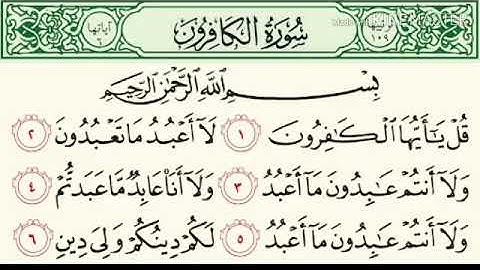 آياتها ٦
سُورَةُ الكَافِرُونَ
ترتيبها ١٠٩
Made with KINEMASTER
بِسْمِ ٱللَّهِ ٱلرَّحْمَٰنِ ٱلرَّحِيمِ
قُلْ يَٰٓأَيُّهَا ٱلْكَٰفِرُونَ ١ لَآ أَعْبُدُ مَا تَعْبُدُونَ ٢
وَلَآ أَنتُمْ عَٰبِدُونَ مَآ أَعْبُدُ ٣ وَلَآ أَنَا۠ عَابِدٌ مَّا عَبَدتُّمْ ٤
وَلَآ أَنتُمْ عَٰبِدُونَ مَآ أَعْبُدُ ٥ لَكُمْ دِينُكُمْ وَلِىَ دِينِ ٦